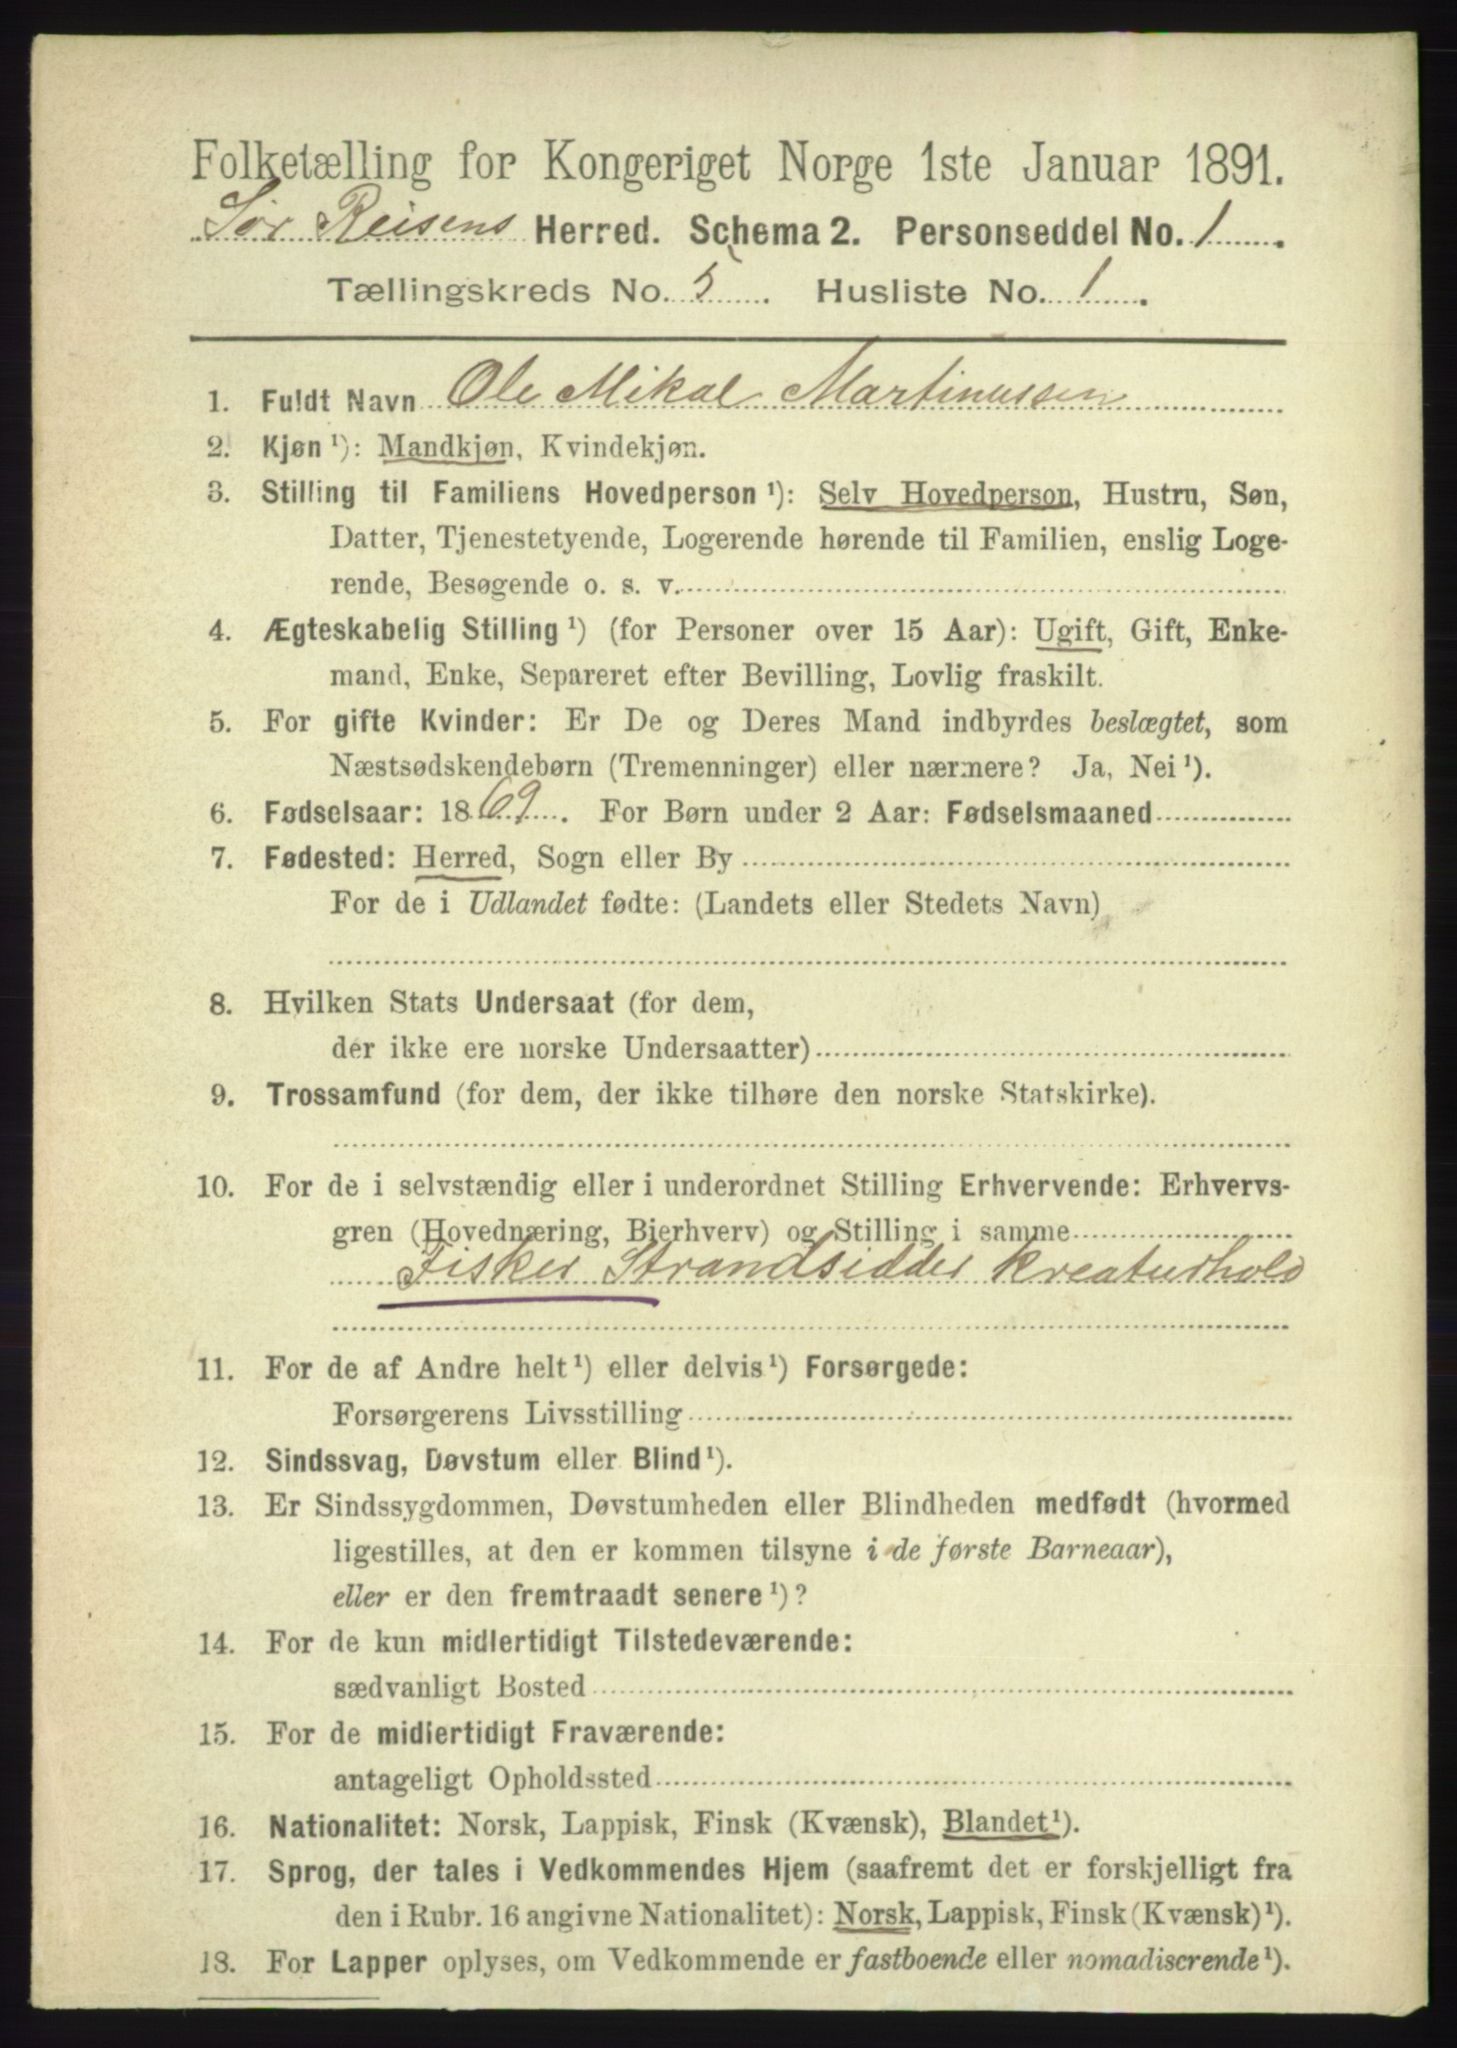 Folketælling for Kongeriget Norge 1ste Januar 1891.
Sør Reisens Herred. Schema 2. Personseddel No. 1
Tællingskreds No. 5. Husliste No. 1.
1. Fuldt Navn Ole Mikal Martinussen
2. Kjøn ¹): Mandkjøn, Kvindekjøn.
3. Stilling til Familiens Hovedperson ¹): Selv Hovedperson, Hustru, Søn,
Datter, Tjenestetyende, Logerende hørende til Familien, enslig Loge-
rende, Besøgende o. s. v.
4. Ægteskabelig Stilling ¹) (for Personer over 15 Aar): Ugift, Gift, Enke-
mand, Enke, Separeret efter Bevilling, Lovlig fraskilt.
5. For gifte Kvinder: Er De og Deres Mand indbyrdes beslægtet, som
Næstsødskendebørn (Tremenninger) eller nærmere? Ja, Nei ¹).
6. Fødselsaar: 1869. For Børn under 2 Aar: Fødselsmaaned
7. Fødested: Herred, Sogn eller By
For de i Udlandet fødte: (Landets eller Stedets Navn)
8. Hvilken Stats Undersaat (for dem,
der ikke ere norske Undersaatter)
9. Trossamfund (for dem, der ikke tilhøre den norske Statskirke).
10. For de i selvstændig eller i underordnet Stilling Erhvervende: Erhvervs-
gren (Hovednæring, Bierhverv) og Stilling i samme
Fisker Strandsidder kreaturhold
11. For de af Andre helt ¹) eller delvis ¹) Forsørgede:
Forsørgerens Livsstilling
12. Sindssvag, Døvstum eller Blind ¹).
13. Er Sindssygdommen, Døvstumheden eller Blindheden medfødt (hvormed
ligestilles, at den er kommen tilsyne i de første Barneaar),
eller er den fremtraadt senere ¹)?
14. For de kun midlertidigt Tilstedeværende:
sædvanligt Bosted
15. For de midlertidigt Fraværende:
antageligt Opholdssted
16. Nationalitet: Norsk, Lappisk, Finsk (Kvænsk), Blandet ¹).
17. Sprog, der tales i Vedkommendes Hjem (saafremt det er forskjelligt fra
den i Rubr. 16 angivne Nationalitet): Norsk, Lappisk, Finsk (Kvænsk) ¹).
18. For Lapper oplyses, om Vedkommende er fastboende eller nomadiserende ¹).